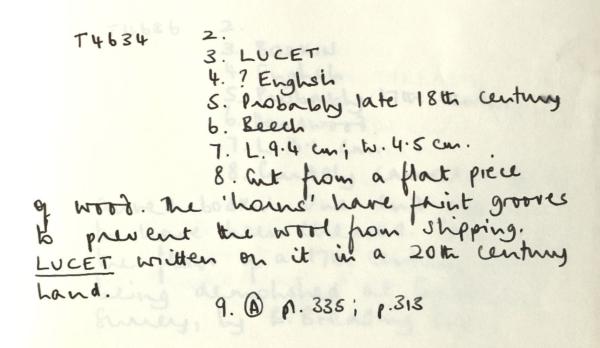 T4634 2.
3. LUCET
4. ? English
5. Probably late 18th century
6. Beech
7. L. 9.4 cm; W. 4.5 cm.
8. Cut from a flat piece
of wood. The 'horns' have faint grooves
to prevent the wool from slipping.
LUCET written on it in a 20th century
hand.
9. Ⓐ pl. 335; p. 313